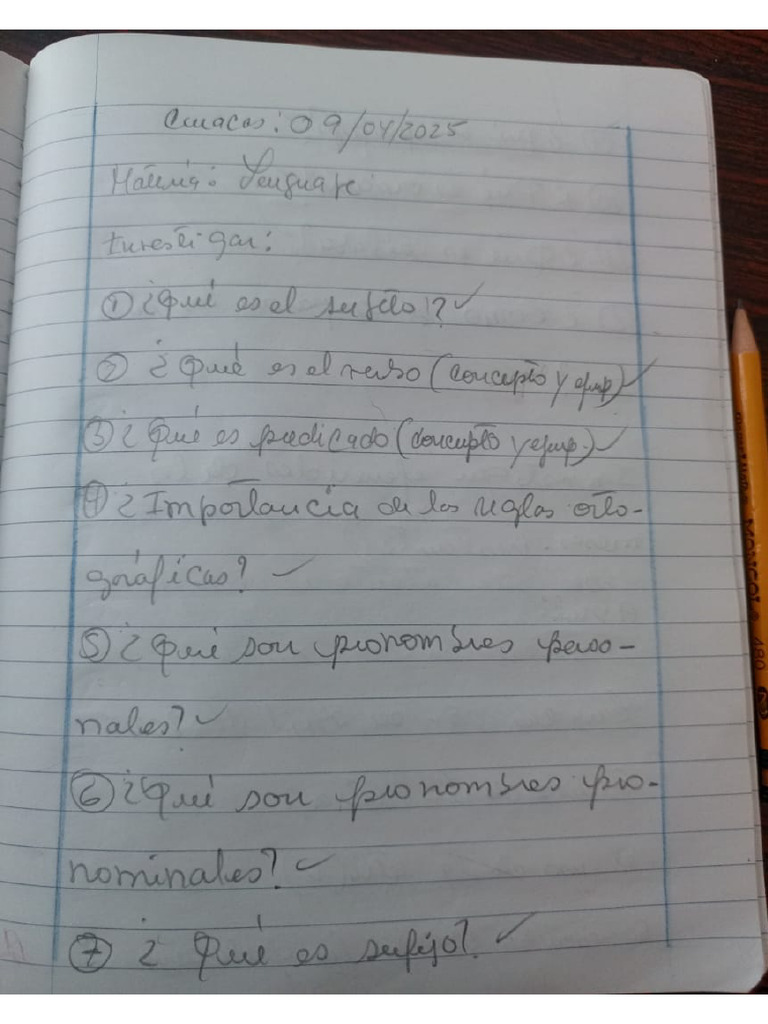 Caracas: 09/04/2025
Materia: Lenguaje
Investigar:
① ¿Qué es el sujeto? ✓
② ¿Qué es el verbo (concepto y ejmp) ✓
③ ¿Qué es predicado (concepto y ejmp.) ✓
④ ¿Importancia de las reglas orto-
gráficas? ✓
⑤ ¿Qué son pronombres perso-
nales? ✓
⑥ ¿Qué son pronombres pro-
nominales? ✓
⑦ ¿Qué es sufijo? ✓
MONGOL 480